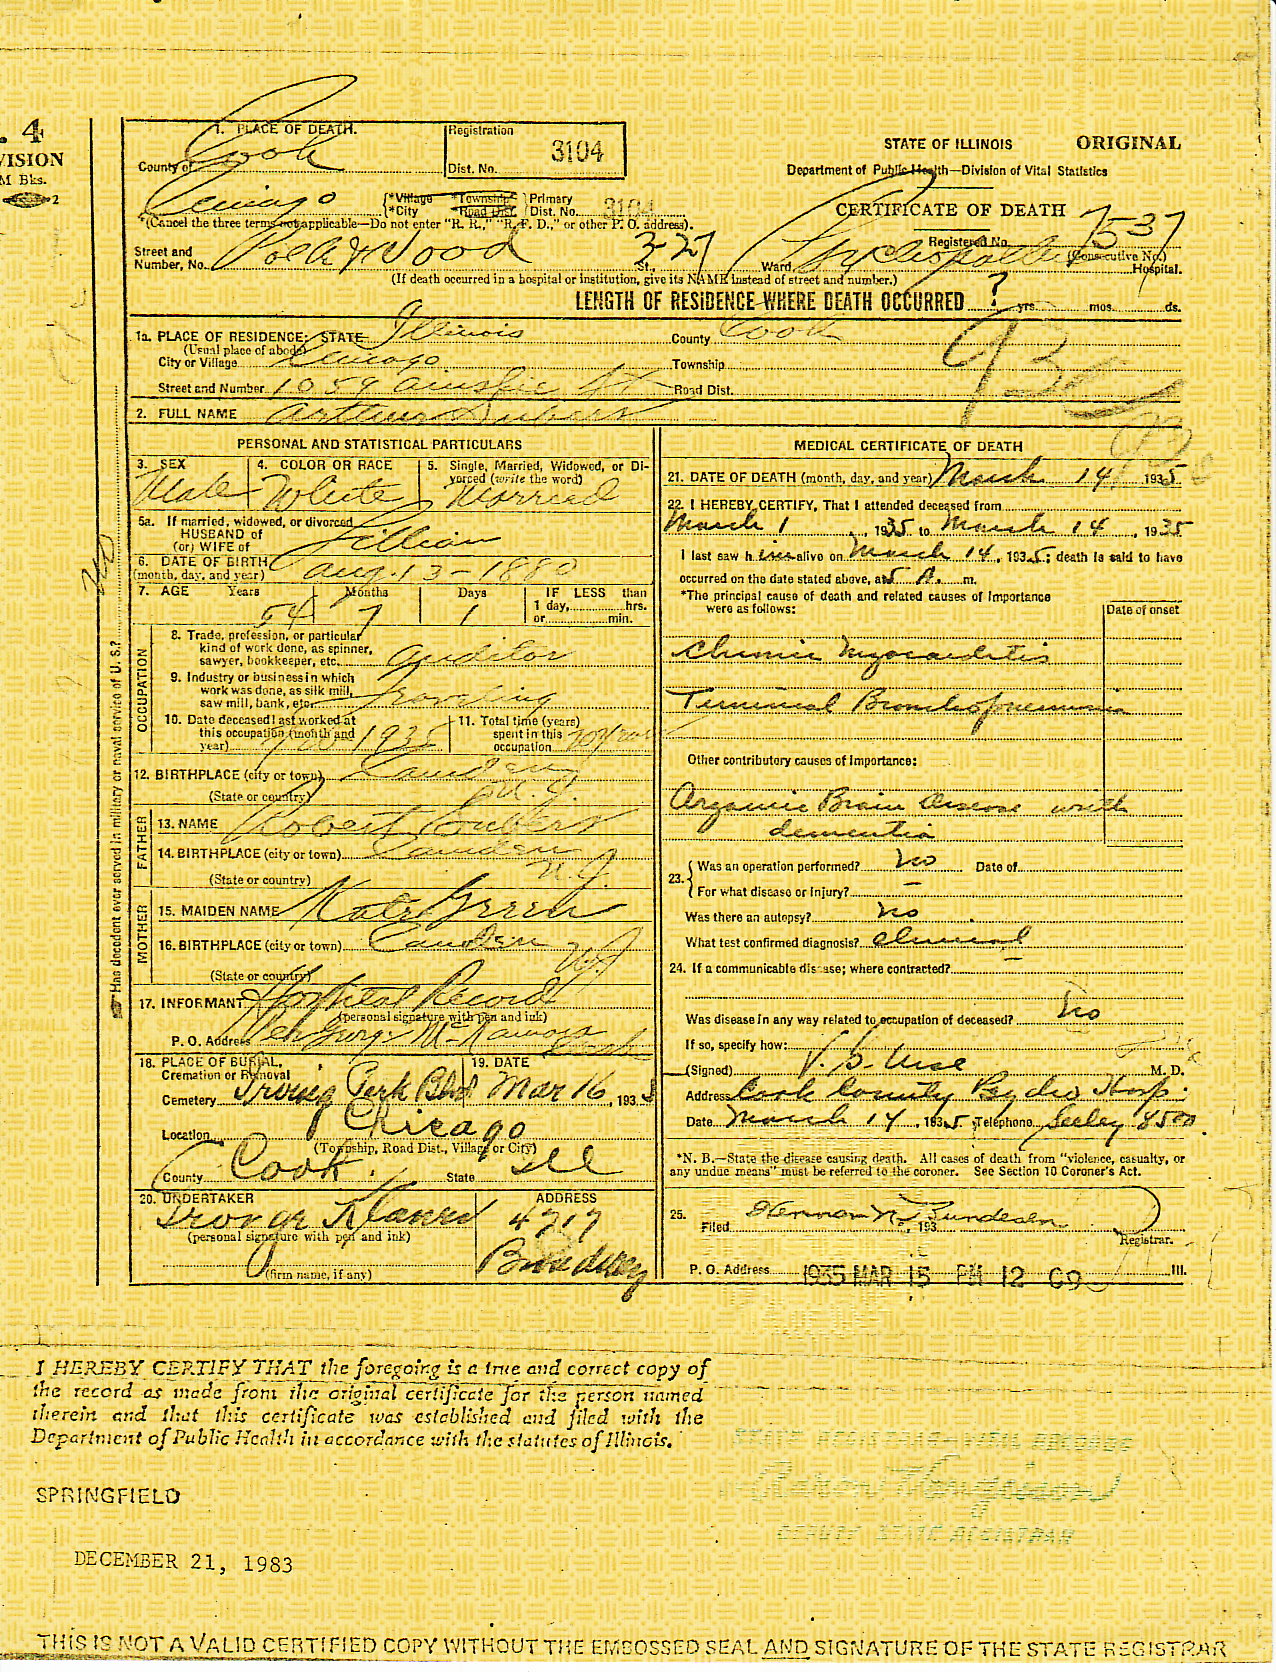 . 4
VISION
M Bks.
2
1. PLACE OF DEATH.
County of Cook
Registration
Dist. No. 3104
STATE OF ILLINOIS ORIGINAL
Department of Public Health—Division of Vital Statistics
CERTIFICATE OF DEATH
Chicago {*Village *Township }Primary
{*City *Road Dist. }Dist. No. 3104
Registered No. 7537
(Consecutive No.)
*(Cancel the three terms not applicable—Do not enter "R. R.," "R. F. D.," or other P. O. address).
Street and
Number, No. Polk & Wood St., 3-27 Ward, Psychopathic Hospital.
(If death occurred in a hospital or institution, give its NAME instead of street and number.)
LENGTH OF RESIDENCE WHERE DEATH OCCURRED ? yrs. mos. ds.
1a. PLACE OF RESIDENCE: STATE Illinois County Cook
(Usual place of abode)
City or Village Chicago Township
Street and Number 1059 Ainslie St Road Dist.
2. FULL NAME Arthur
PERSONAL AND STATISTICAL PARTICULARS
3. SEX
Male
4. COLOR OR RACE
White
5. Single, Married, Widowed, or Di-
vorced (write the word)
Married
5a. If married, widowed, or divorced
HUSBAND of
(or) WIFE of Lillian
6. DATE OF BIRTH
(month, day, and year) Aug. 13-1880
7. AGE Years Months Days IF LESS than
1 day, hrs.
or min.
54 7 1
OCCUPATION
8. Trade, profession, or particular
kind of work done, as spinner,
sawyer, bookkeeper, etc. Auditor
9. Industry or business in which
work was done, as silk mill,
saw mill, bank, etc. Traveling
10. Date deceased last worked at
this occupation (month and
year) 1935
11. Total time (years)
spent in this
occupation 20 years
12. BIRTHPLACE (city or town) Camden
(State or country) N. J.
FATHER
13. NAME Robert
14. BIRTHPLACE (city or town) Camden
(State or country) N. J.
MOTHER
15. MAIDEN NAME Kate Green
16. BIRTHPLACE (city or town) Camden
(State or country) N J
17. INFORMANT Hospital Record
(personal signature with pen and ink)
P. O. Address George
18. PLACE OF BURIAL,
Cremation or Removal
19. DATE
Cemetery Irving Park Blvd Mar 16, 1935
Location Chicago
(Township, Road Dist., Village or City)
County Cook State Ill
20. UNDERTAKER ADDRESS
4717
Broadway
(personal signature with pen and ink)
(firm name, if any)
Has decedent ever served in military or naval service of U. S.? no
MEDICAL CERTIFICATE OF DEATH
21. DATE OF DEATH (month, day, and year) March 14 1935
22. I HEREBY CERTIFY, That I attended deceased from
March 1, 1935 to March 14, 1935
I last saw him alive on March 14, 1935, death is said to have
occurred on the date stated above, at 5 A. m.
*The principal cause of death and related causes of importance
were as follows:
Date of onset
Chronic Myocarditis
Terminal Bronchopneumonia
Other contributory causes of importance:
Organic Brain Disease with
dementia
23. { Was an operation performed? no Date of
For what disease or injury? —
Was there an autopsy? no
What test confirmed diagnosis? clinical
24. If a communicable disease; where contracted?
Was disease in any way related to occupation of deceased? No
If so, specify how:
(Signed) M. D.
Address Cook County Psycho Hosp.
Date March 14, 1935 Telephone Seeley 8500
*N. B.—State the disease causing death. All cases of death from "violence, casualty, or
any undue means" must be referred to the coroner. See Section 10 Coroner's Act.
25.
Filed Herman N. Bundesen 193
Registrar.
P. O. Address 1935 MAR 15 PM 12 09 Ill.
I HEREBY CERTIFY THAT the foregoing is a true and correct copy of
the record as made from the original certificate for the person named
therein and that this certificate was established and filed with the
Department of Public Health in accordance with the statutes of Illinois.
STATE REGISTRAR VITAL RECORDS
DEPUTY STATE REGISTRAR
SPRINGFIELD
DECEMBER 21, 1983
THIS IS NOT A VALID CERTIFIED COPY WITHOUT THE EMBOSSED SEAL AND SIGNATURE OF THE STATE REGISTRAR